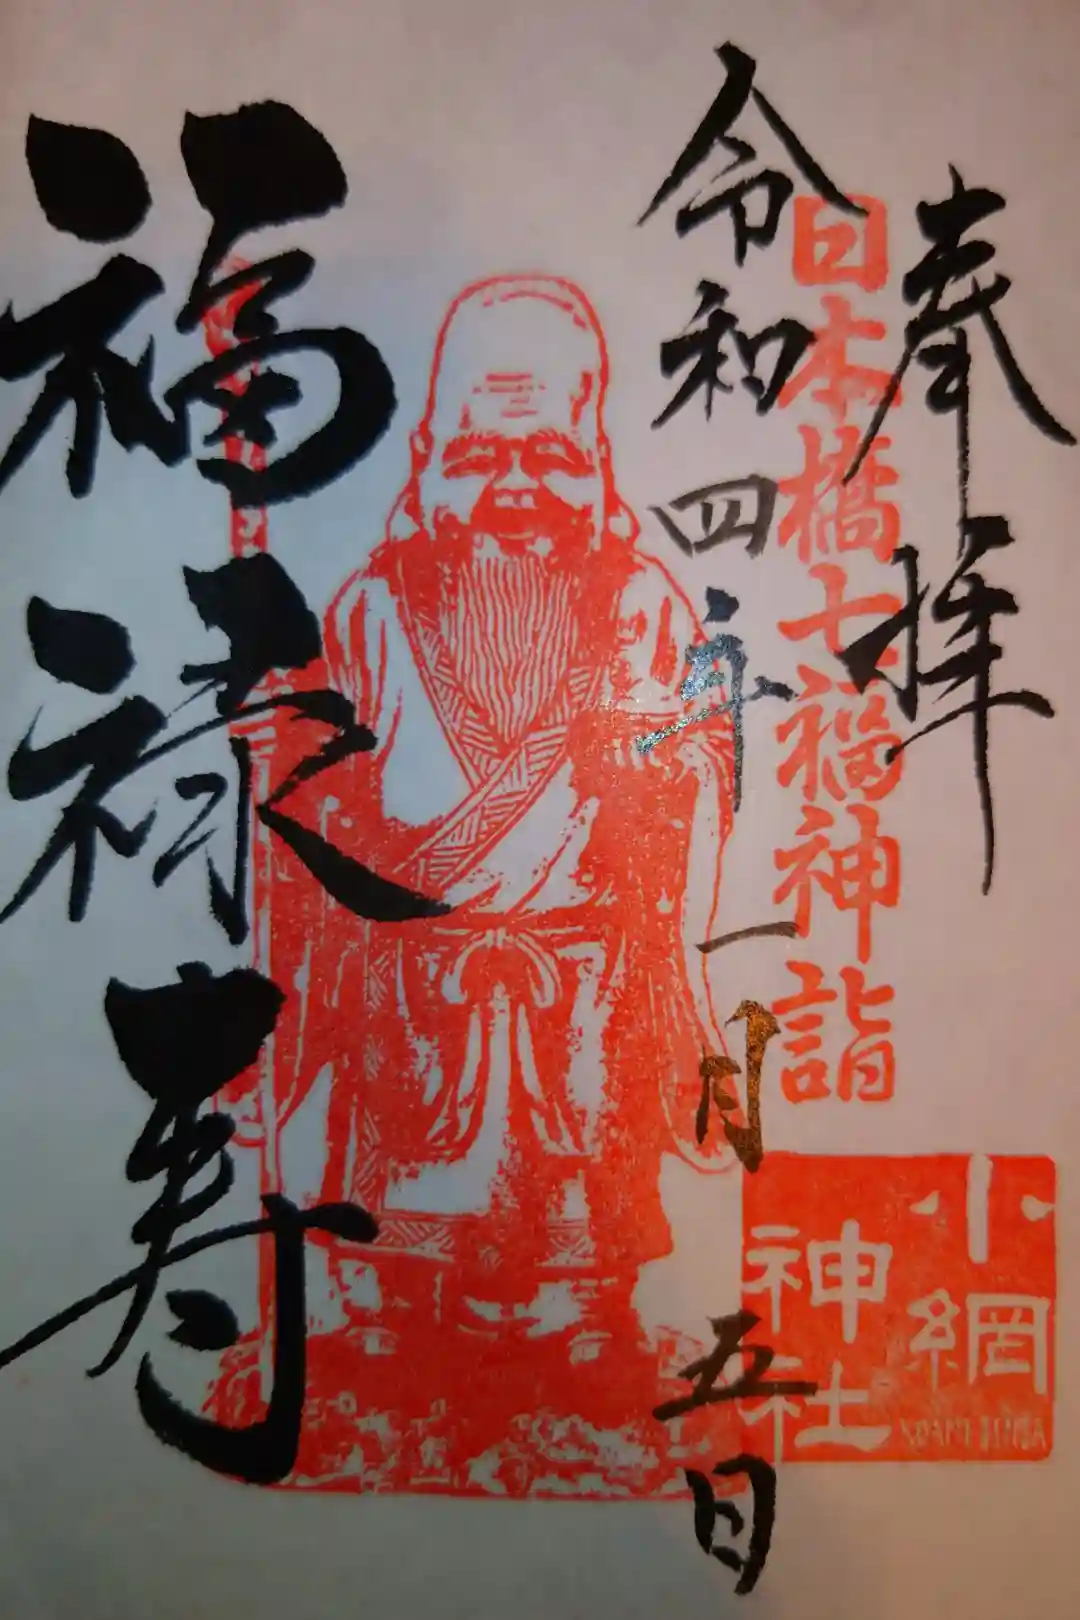 奉拝
日本橋七福神詣
小網
神社
KOAMI JINJA
令和四年一月五日
福禄寿